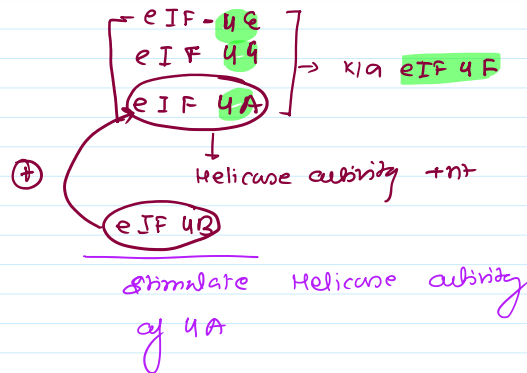 eIF-4E
eIF 4G
eIF 4A
→ K/a eIF 4F
Helicase activity +nt
+
eIF 4B
stimulate Helicase activity
of 4A